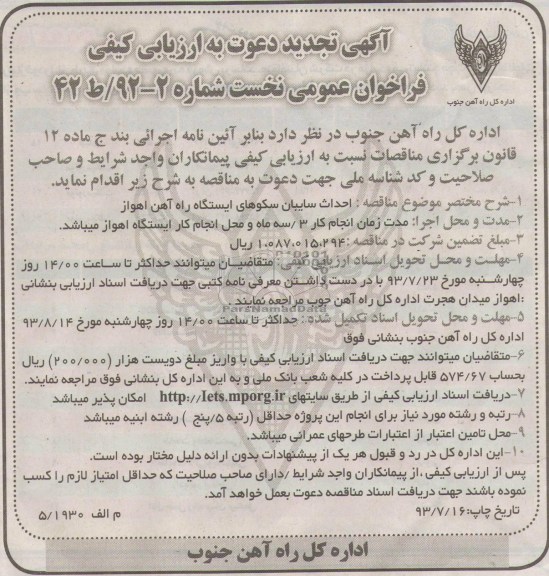 آگهی تجدید دعوت به ارزیابی کیفی
فراخوان عمومی نخست شماره ۲-۹۲/ط ۴۲
اداره کل راه آهن جنوب
اداره کل راه آهن جنوب در نظر دارد بنابر آئین نامه اجرائی بند ج ماده ۱۲
قانون برگزاری مناقصات نسبت به ارزیابی کیفی پیمانکاران واجد شرایط و صاحب
صلاحیت و کد شناسه ملی جهت دعوت به مناقصه به شرح زیر اقدام نماید.
۱-شرح مختصر موضوع مناقصه : احداث سایبان سکوهای ایستگاه راه آهن اهواز
۲-مدت و محل اجرا: مدت زمان انجام کار ۳ /سه ماه و محل انجام کار ایستگاه اهواز میباشد.
۳-مبلغ تضمین شرکت در مناقصه :۱.۰۸۷.۰۱۵.۲۹۴ ریال
۴-مهلت و محل تحویل اسناد ارزیابی کیفی: متقاضیان میتوانند حداکثر تا ساعت ۱۴/۰۰ روز
چهارشنبه مورخ ۹۳/۷/۲۳ با در دست داشتن معرفی نامه کتبی جهت دریافت اسناد ارزیابی بنشانی
:اهواز میدان هجرت اداره کل راه آهن جوب مراجعه نمایند .
ParsNamadData
۵-مهلت و محل تحویل اسناد تکمیل شده : حداکثر تا ساعت ۱۴/۰۰ روز چهارشنبه مورخ ۹۳/۸/۱۴
اداره کل راه آهن جنوب بنشانی فوق
۶-متقاضیان میتوانند جهت دریافت اسناد ارزیابی کیفی با واریز مبلغ دویست هزار (۲۰۰/۰۰۰) ریال
بحساب ۵۷۴/۶۷ قابل پرداخت در کلیه شعب بانک ملی و به این اداره کل بنشانی فوق مراجعه نمایند.
۷-دریافت اسناد ارزیابی کیفی از طریق سایتهای http://Iets.mporg.ir امکان پذیر میباشد
۸-رتبه و رشته مورد نیاز برای انجام این پروژه حداقل (رتبه ۵/پنج ) رشته ابنیه میباشد
۹-محل تامین اعتبار از اعتبارات طرحهای عمرانی میباشد.
۱۰-این اداره کل در رد و قبول هر یک از پیشنهادات بدون ارائه دلیل مختار بوده است.
پس از ارزیابی کیفی ،از پیمانکاران واجد شرایط /دارای صاحب صلاحیت که حداقل امتیاز لازم را کسب
نموده باشند جهت دریافت اسناد مناقصه دعوت بعمل خواهد آمد.
تاریخ چاپ:۹۳/۷/۱۶ م الف ۵/۱۹۳۰
اداره کل راه آهن جنوب